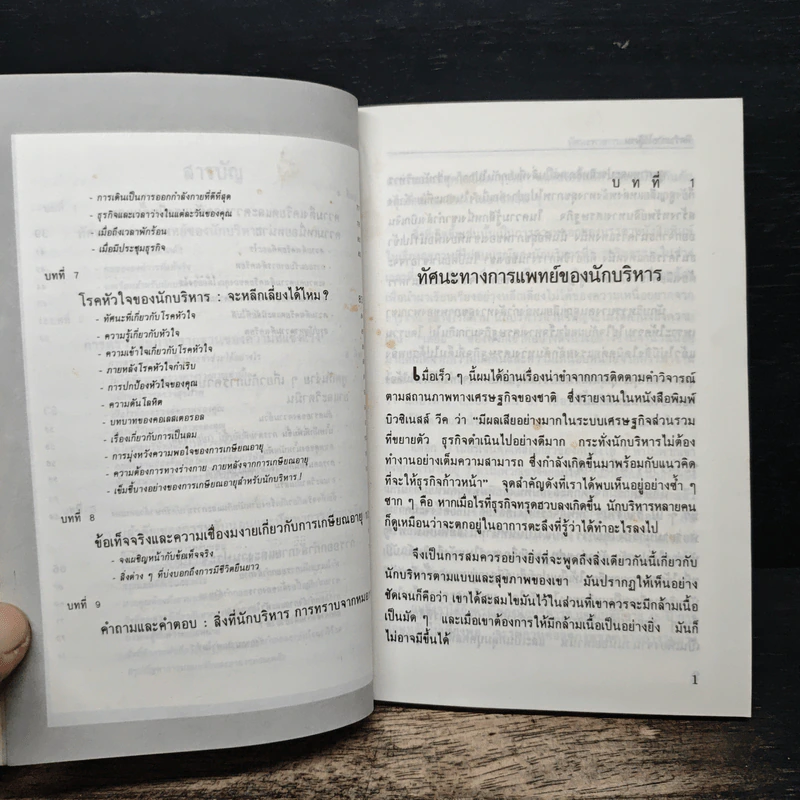 - การเดินเป็นการออกกำลังกายที่ดีที่สุด
- ธุรกิจและเวลาว่างในแต่ละวันของคุณ
- เมื่อถึงเวลาพักร้อน
- เมื่อมีประชุมธุรกิจ
บทที่ 7
โรคหัวใจของนักบริหาร : จะหลีกเลี่ยงได้ไหม ?
- ทัศนะที่เกี่ยวกับโรคหัวใจ
- ความรู้เกี่ยวกับหัวใจ
- ความเข้าใจเกี่ยวกับโรคหัวใจ
- ภายหลังโรคหัวใจกำเริบ
- การปกป้องหัวใจของคุณ
- ความดันโลหิต
- บทบาทของคอเลสเตอรอล
- เรื่องเกี่ยวกับการเป็นลม
- การมุ่งหวังความพอใจของการเกษียณอายุ
- ความต้องการทางร่างกาย ภายหลังจากการเกษียณอายุ
- เข็มชี้บางอย่างของการเกษียณอายุสำหรับนักบริหาร !
บทที่ 8
ข้อเท็จจริงและความเชื่องมงายเกี่ยวกับการเกษียณอายุ
- จงเผชิญหน้ากับข้อเท็จจริง
- สิ่งต่าง ๆ ที่บ่งบอกถึงการมีชีวิตยืนยาว
บทที่ 9
คำถามและคำตอบ : สิ่งที่นักบริหาร การทราบจากหมอ
บทที่ 1
ทัศนะทางการแพทย์ของนักบริหาร
เมื่อเร็ว ๆ นี้ผมได้อ่านเรื่องน่าขำจากการติดตามคำวิจารณ์
ตามสถานภาพทางเศรษฐกิจของชาติ ซึ่งรายงานในหนังสือพิมพ์
บิวซิเนสส์ วีค ว่า "มีผลเสียอย่างมากในระบบเศรษฐกิจส่วนรวม
ที่ขยายตัว ธุรกิจดำเนินไปอย่างดีมาก กระทั่งนักบริหารไม่ต้อง
ทำงานอย่างเต็มความสามารถ ซึ่งกำลังเกิดขึ้นมาพร้อมกับแนวคิด
ที่จะให้ธุรกิจก้าวหน้า" จุดสำคัญดังที่เราได้พบเห็นอยู่อย่างซ้ำ ๆ
ซาก ๆ คือ หากเมื่อไรที่ธุรกิจทรุดฮวบลงเกิดขึ้น นักบริหารหลายคน
ก็ดูเหมือนว่าจะตกอยู่ในอาการตะลึงที่รู้ว่าได้ทำอะไรลงไป
จึงเป็นการสมควรอย่างยิ่งที่จะพูดถึงสิ่งเดียวกันนี้เกี่ยวกับ
นักบริหารตามแบบและสุขภาพของเขา มันปรากฏให้เห็นอย่าง
ชัดเจนก็คือว่า เขาได้สะสมไขมันไว้ในส่วนที่เขาควรจะมีกล้ามเนื้อ
เป็นมัด ๆ และเมื่อเขาต้องการให้มีกล้ามเนื้อเป็นอย่างยิ่ง มันก็
ไม่อาจมีขึ้นได้
1